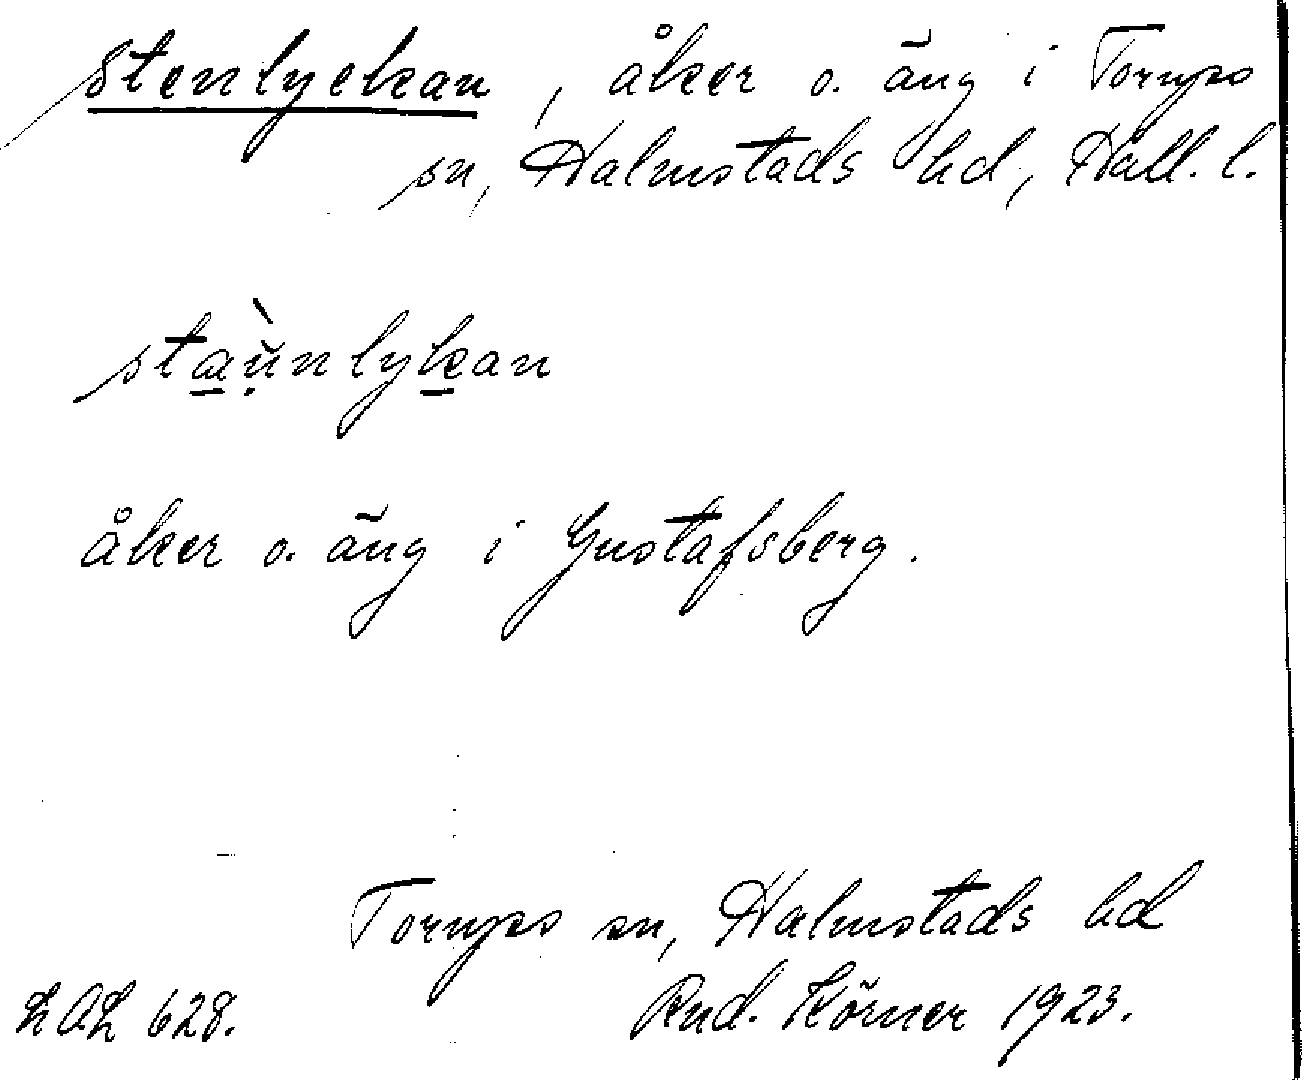 Stenlyckan, åker o. äng i Torups
sn, Halmstads hd, Hall. l.
staùnlykan
åker o. äng i Gustafsberg.
Torups sn, Halmstads hd
LAL 628. Rud. Körner 1923.